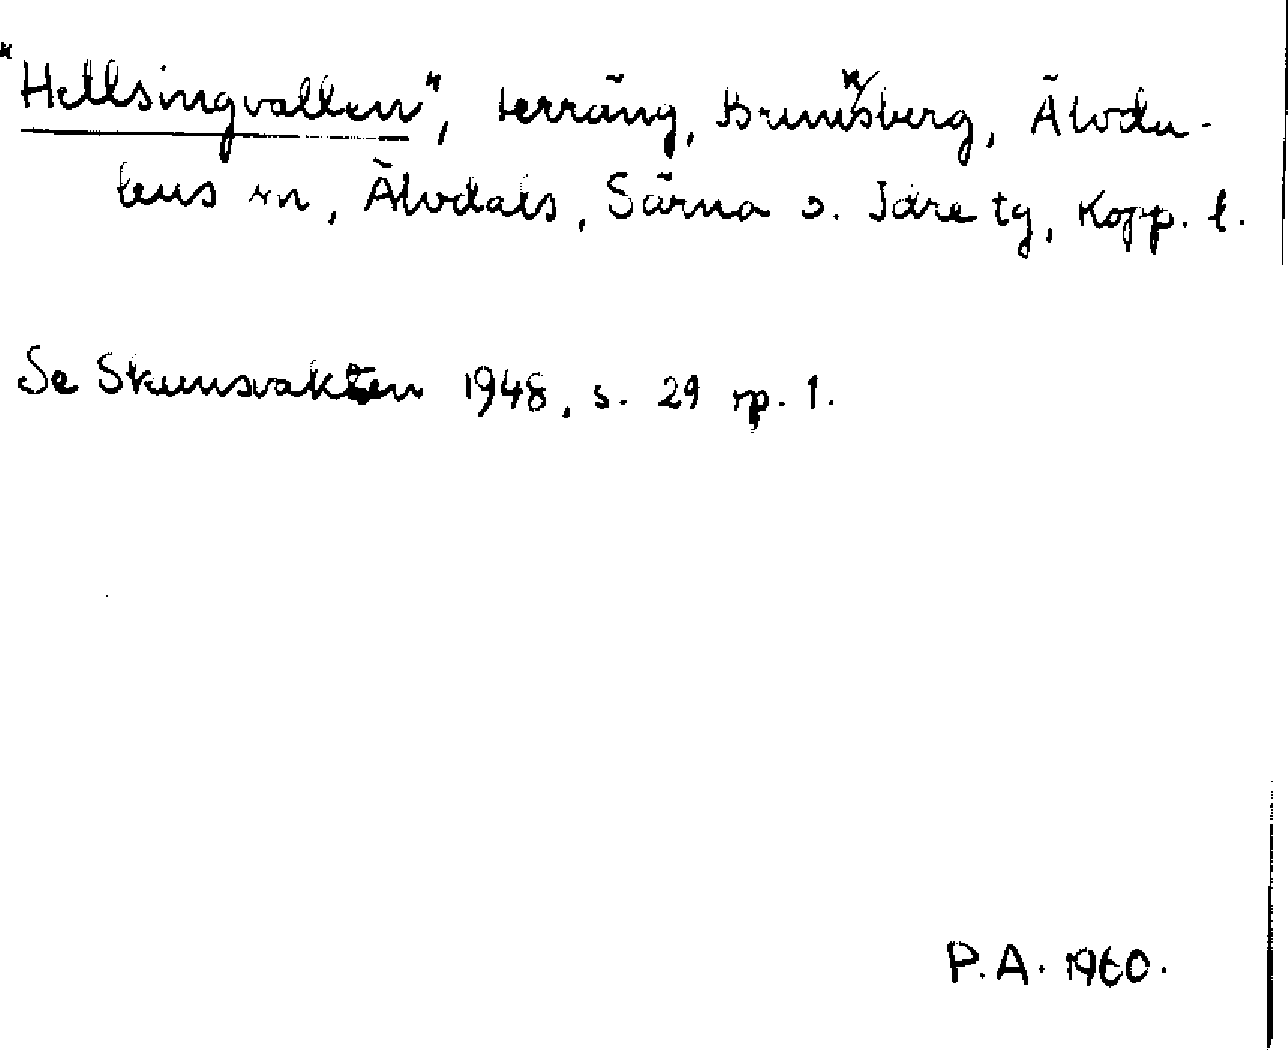 "Hellsingvallen", terräng, Brunnsberg, Älvda-
lens sn, Älvdals, Särna o. Idre tg, Kopp. l.
Se Skansvakten 1948, s. 29 sp. 1.
P.A. 1960.